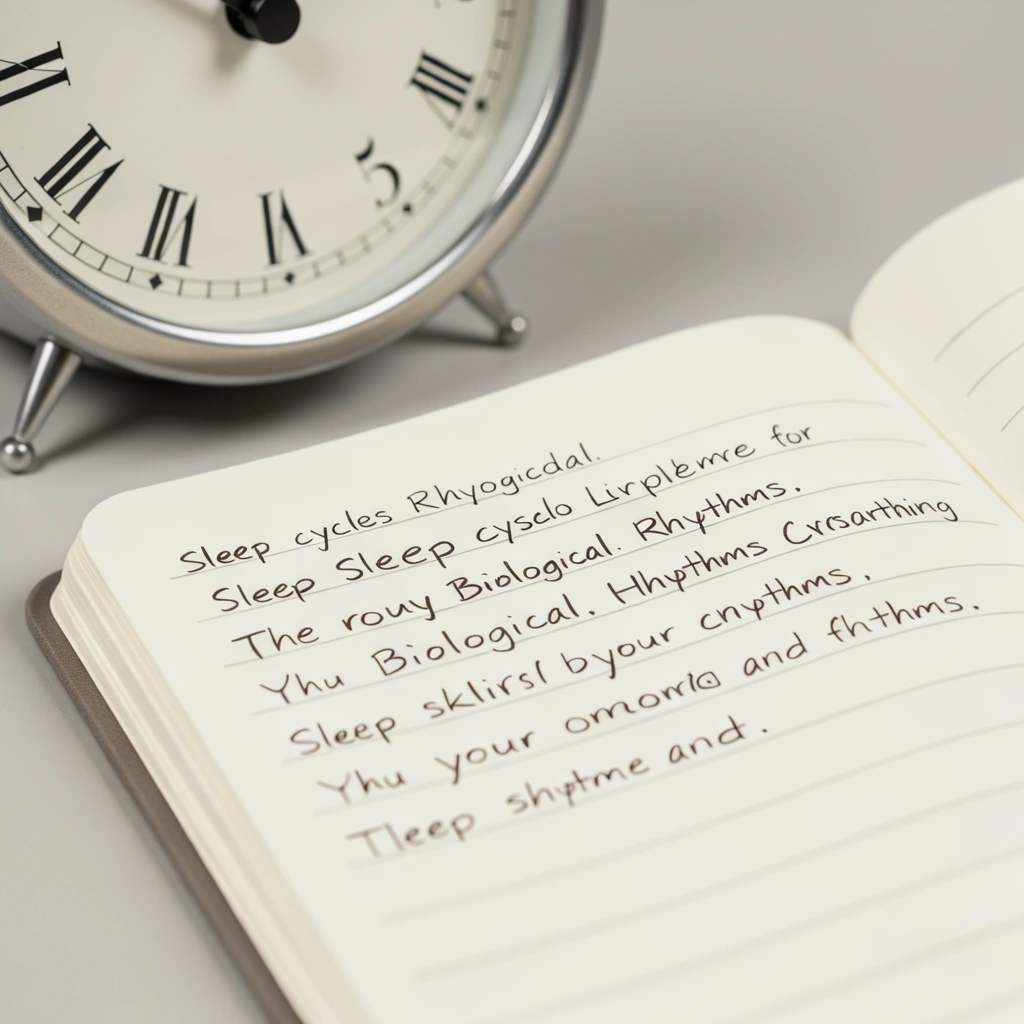 Sleep cycles Rhyogicdal.
Sleep Sleep cysclo Lirplekmre for
The rouy Biological. Rhythms.
Yhu Biological. Hhythms Crrsarthing
Sleep sklirsl byour cnythms.
Yhu your and fhthms.
Tleep shytme and.
5